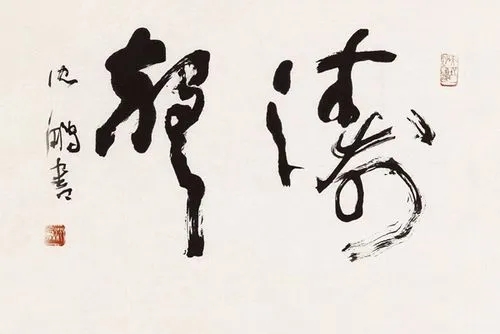 濤聲
沈鵬書